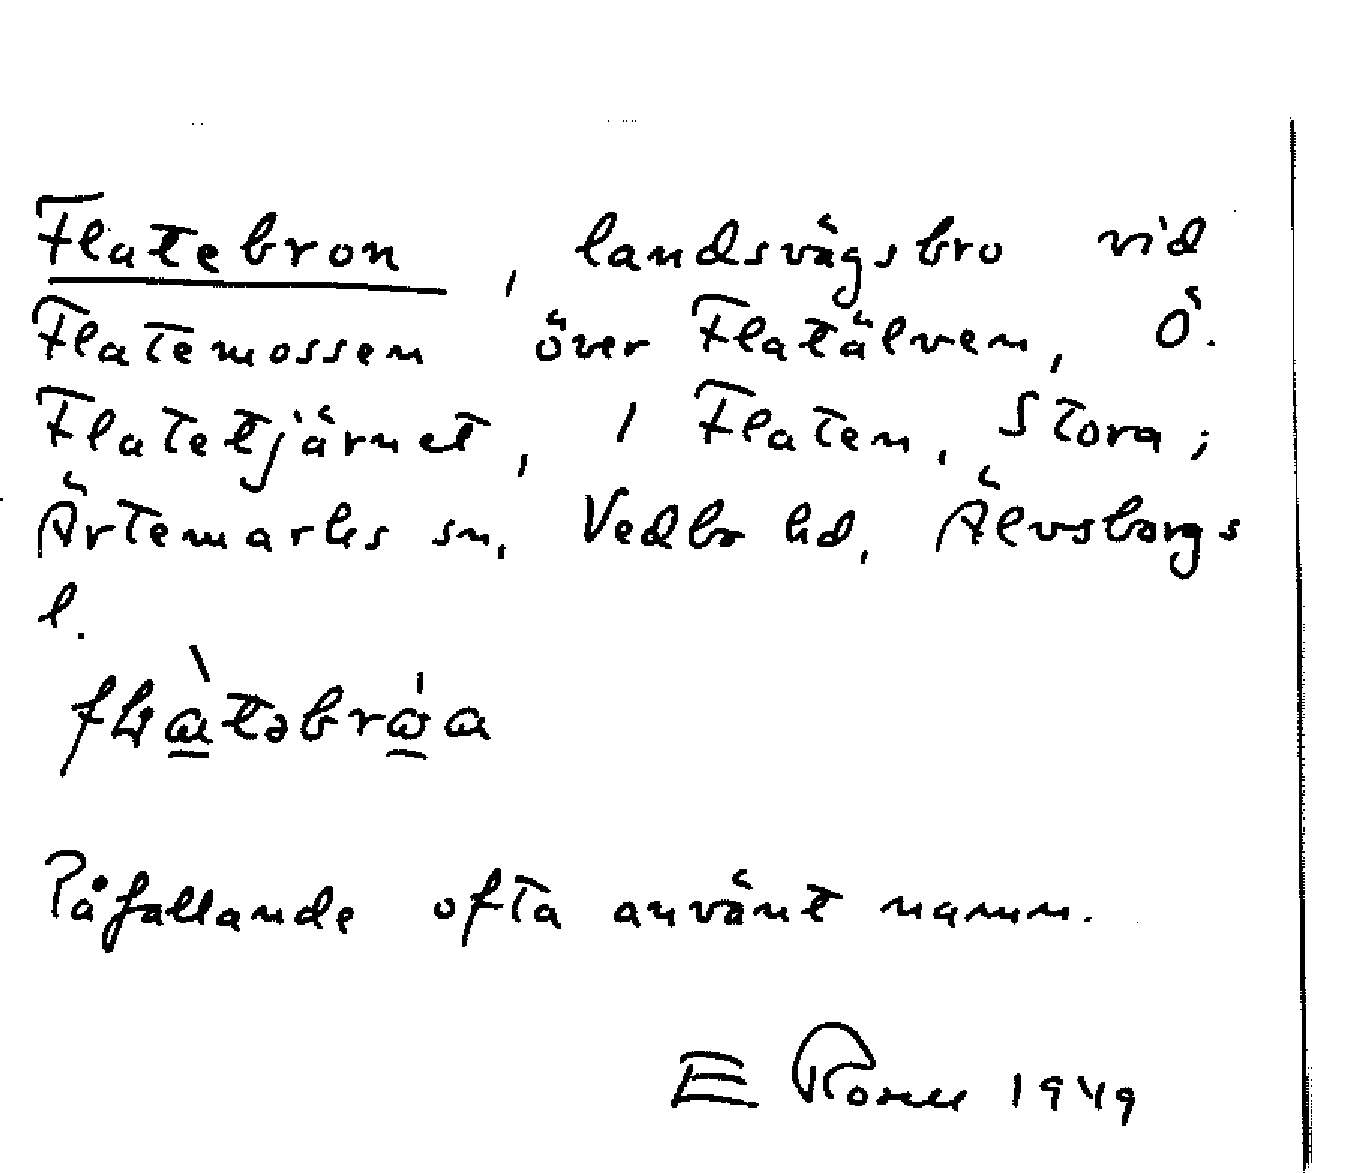 Flatebron, landsvägsbro vid
Flatemossen över Flatälven, Ö.
Flatetjärnet, / Flaten, Stora;
Ärtemarks sn, Vedbo hd, Älvsborgs
l.
Påfallande ofta använt namn.
E 1949